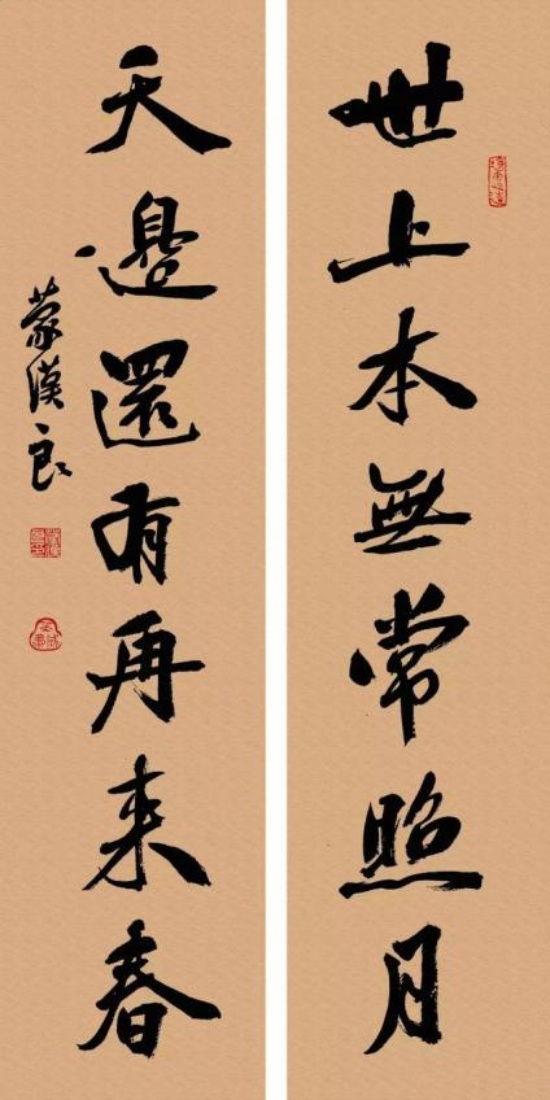 世上本無常照月
天邊還有再来春
蒙漢良